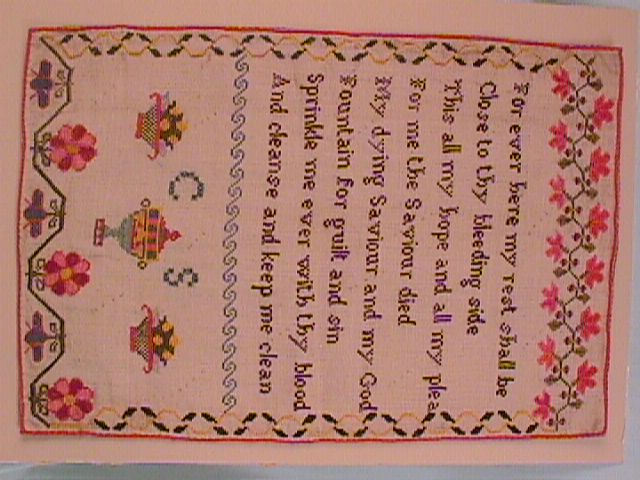 For ever here my rest shall be
Close to thy bleeding side
This all my hope and all my plea
For me the Saviour died
My dying Saviour and my God
Fountain for guilt and sin
Sprinkle me ever with thy blood
And cleanse and keep me clean
C S